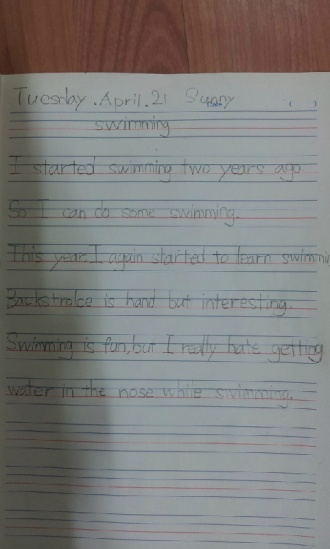 Tuesday. April. 21 Sunny ( )
swimming
I started swimming two years ago
So I can do some swimming.
This year, I again started to learn swimmin
Backstroke is hand but interesting.
Swimming is fun, but I really hate getting
water in the nose while swimming.